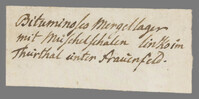 Bituminoses Mergellager
mit Muschelschalen links im
Thurthal unter Frauenfeld.